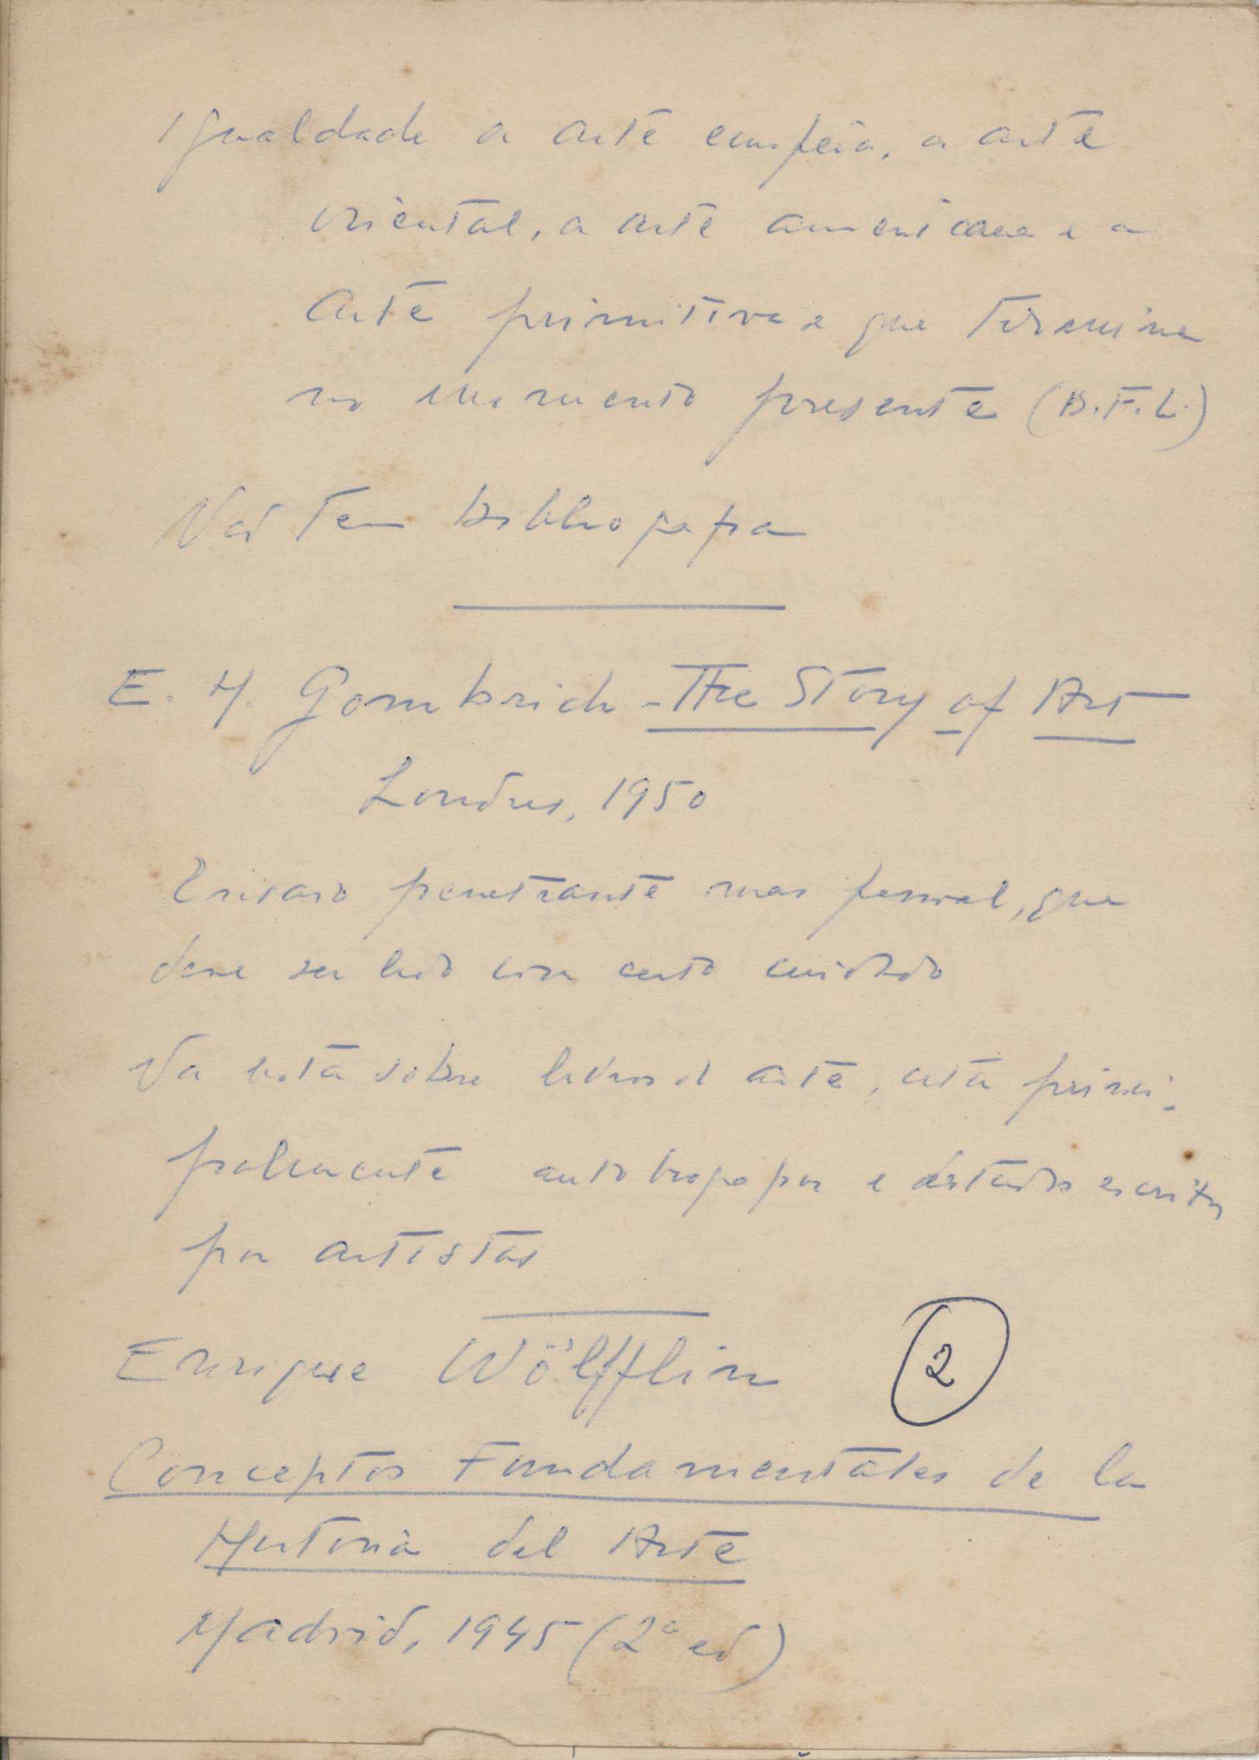 Igualdade a arte européia, a arte
oriental, a arte americana e a
arte primitiva e que termina
no momento presente (B.F.L.)
Não tem bibliografia
E. H. Gombrich - The Story of Art
Londres, 1950
Ensaio penetrante mas pessoal, que
deve ser lido com certo cuidado
Na lista sobre livros de arte, cita princi-
palmente autobiografias e estudos escritos
por artistas
Enrique Wölfflin
2
Conceptos Fundamentales de la
Historia del Arte
Madrid, 1945 (2ª ed)